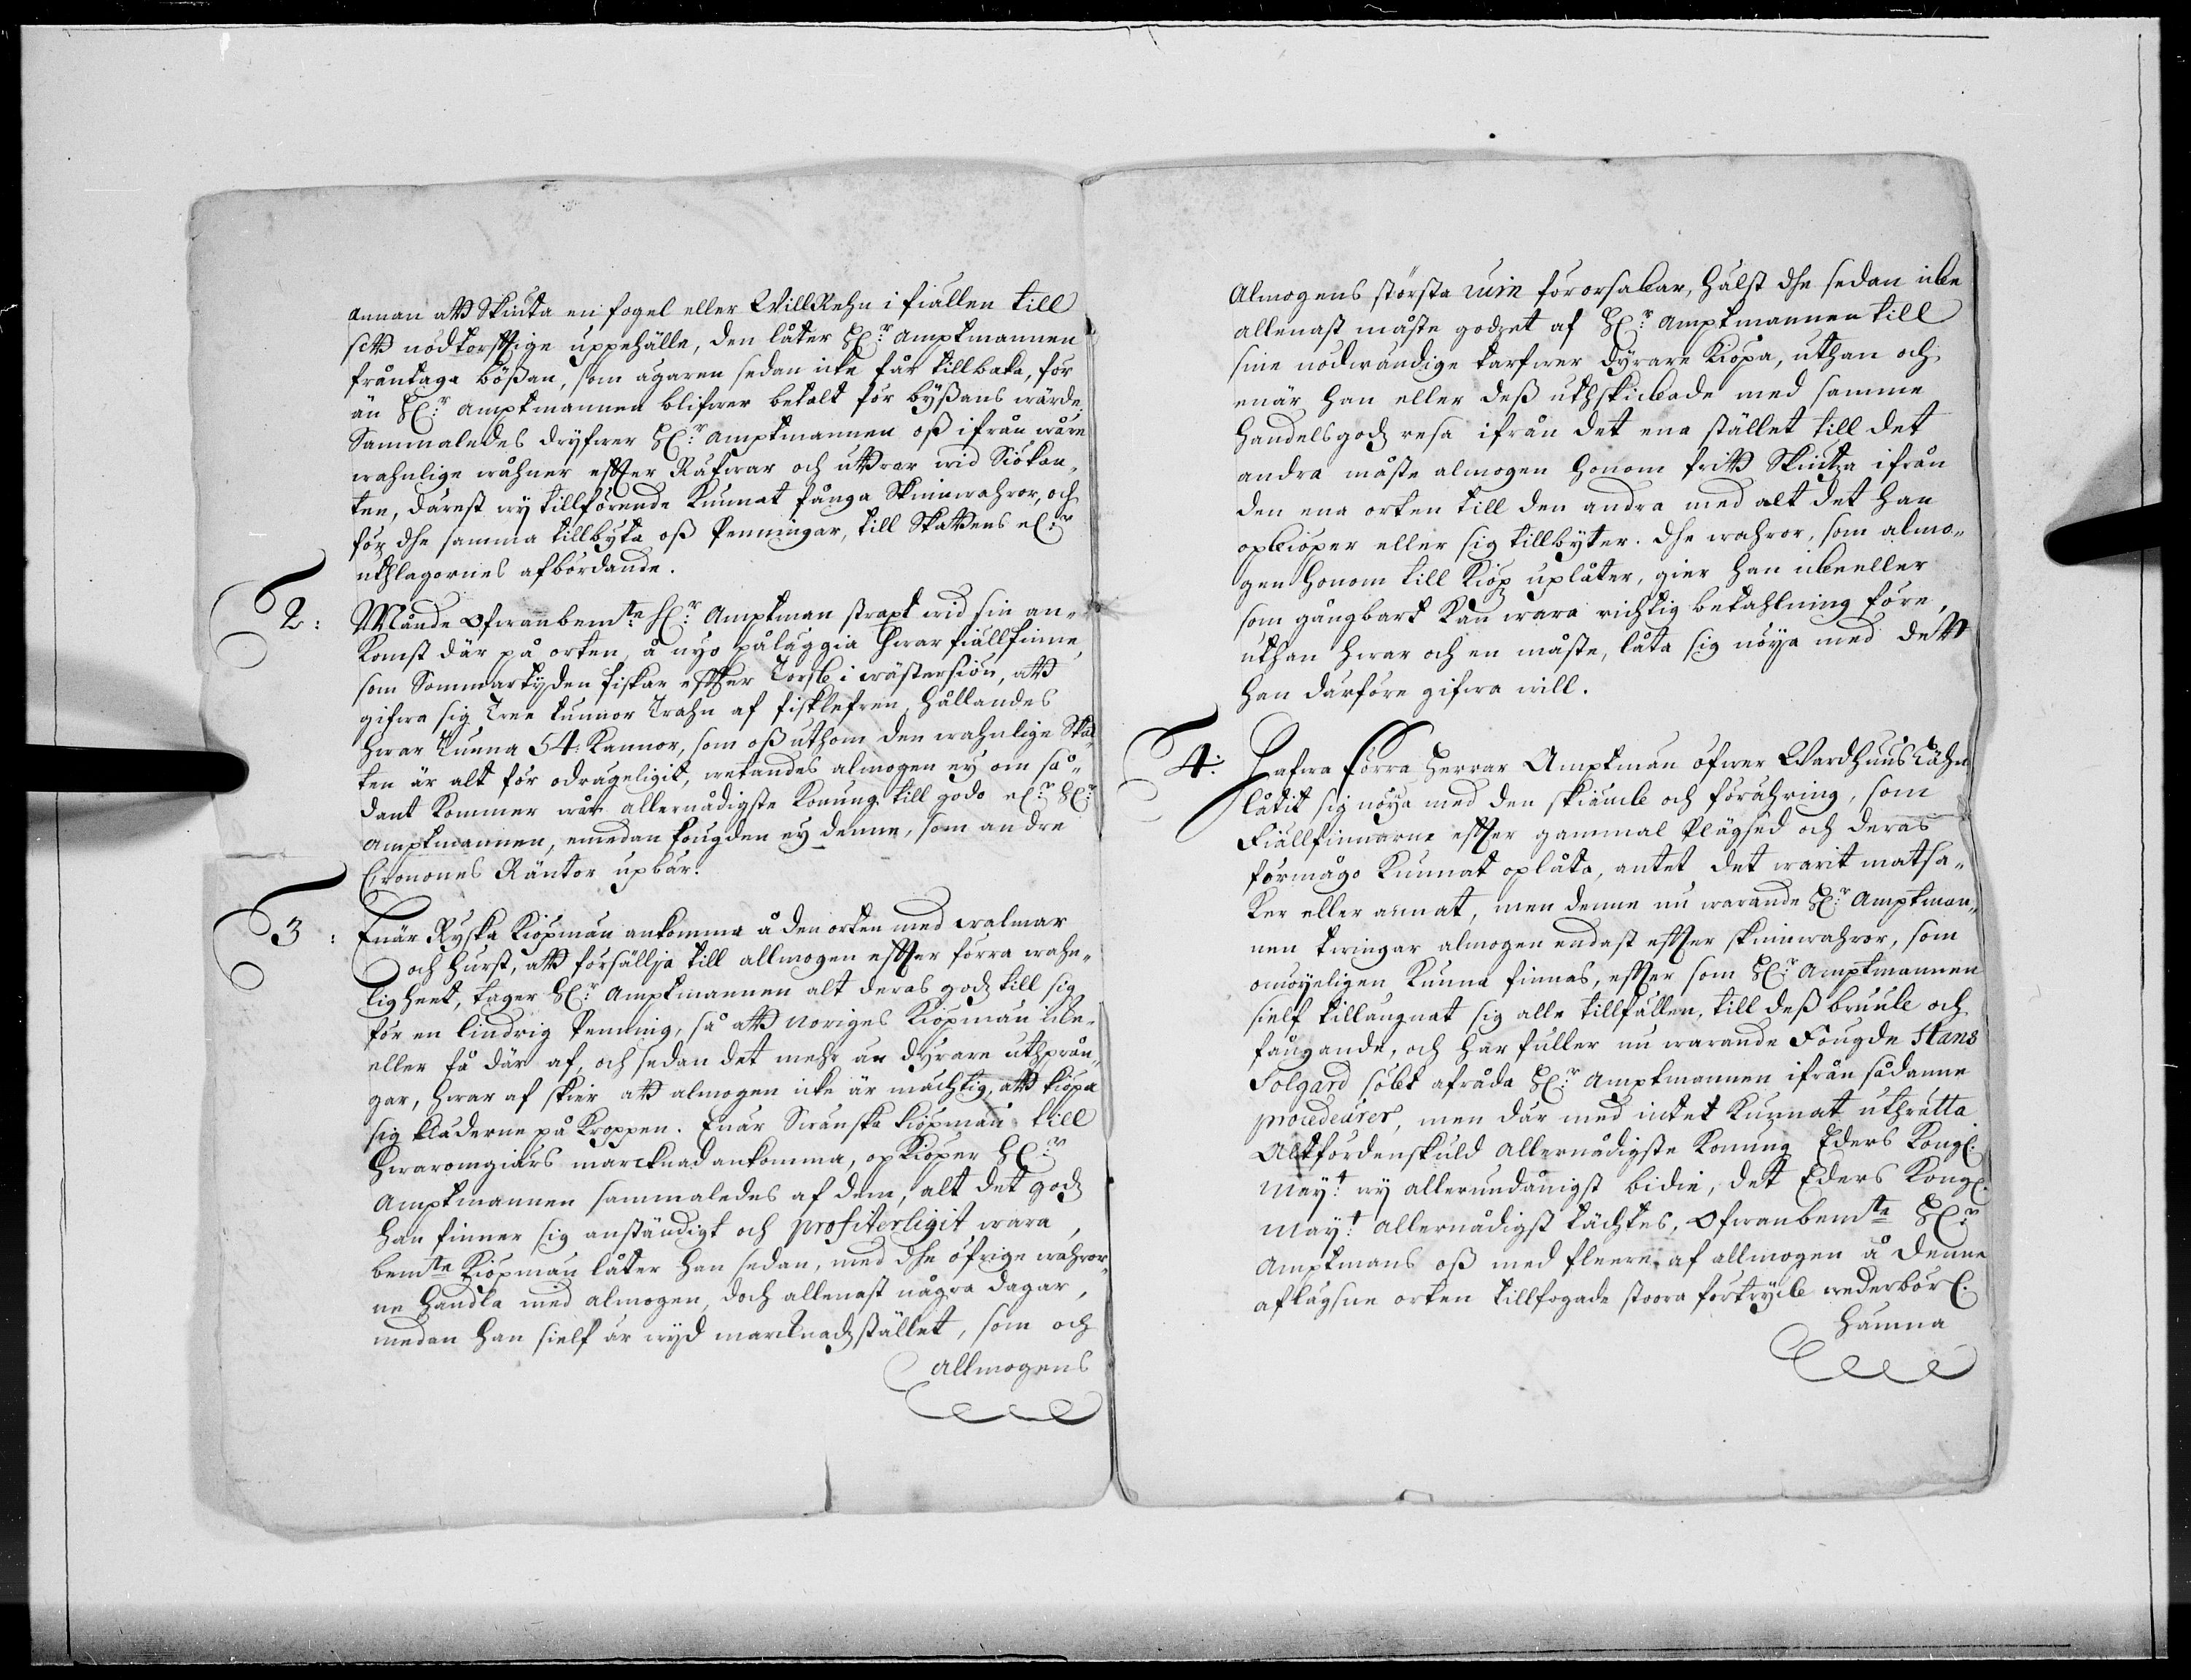 annan att Skiuta en fogel eller WillRehn i fiällen till
sitt nödtorfftige uppehälle, den låter H:r Amptmannen
fråntaga bößan, som ägaren sedan icke får tillbaka, för
än H:r Amptmannen blifwer betalt för byßans wärde;
Sammaledes dryfwer H:r Amptmannen oß ifrån wåre
wahnlige wåhner effter Räfwar och uttrar wid Siökan-
ten, därest wy tillförende Kunnat fånga Skinwahror, och
för dhe samma tillbyta oß Penningar, till Skattens el:r
uthlagornes afbördande.
2: Månde Ofwanbem:te H:r Amptman strapt wid sin an-
Komst där på orten, å nyo pålaggia Hwar fiällfinne,
som Sommartyden fiskar effter Torsk i wästersiön, att
gifwa sig Tree tunnor Trahn af fisklefren, hållandes
hwar Tunna 54: Kannor, som oß uthom den wahnlige Skat-
ten är alt för odrageligit, wetandes almogen ey om så-
dant Kommer wår allernådigste Konung till godo el:r H:r
Amptmannen, emedan fougden ey denne, som andre
Cronones Räntor upbär.
3: Enär Ryska Kiöpmän ankomma å den orten med walmar
och Hurst, att försällja till allmogen effter förra wahn-
ligheet, tager H:r Amptmannen alt deras godz till sig
för en lindrig Penning, så att Noriges Kiöpmän icke
eller få där af, och sedan det mehr än dyrare uthprån-
gar, hwar af skier att almogen icke är mächtig, att kiöpa
sig kläderne på Kroppen. Enär Swänska kiöpmän till
Hwaromgiärs marcknad ankomma, opkiöper H:r
Amptmannen sammaledes af dem, alt det godz
han finner sig anständigt och profiterligit wara,
bem:te Kiöpmän låter han sedan, med dhe öfrige wahror-
ne handla med almogen, doch allenast några dagar,
medan han sielf är wyd marcknadzstället, som och
allmogens
Almogens största ruin förorsakar, hälst dhe sedan icke
allenast måste godzet af H:r Amptmannen till
sine nödwändige tarfwer dyrare Kiöpa, uthan och
enär han eller deß uthskickade med samme
handelsgodz resa ifrån det ena stället till det
andra måste almogen honom fritt Skiutza ifrån
den ena orten till den andra med alt det han
opkiöper eller sig tillbyter. Dhe wahror, som almo-
gen honom till Kiöp uplåter, gier han icke eller
som gångbart Kan wara richtig betahlning före,
uthan hwar och en måste, låta sig nöya med dett
han därföre gifwa will.
4: Hafwa förra Herrar Amptman öfwer Wardhuus Lähn
låtit sig nöya med den skiänck och förähring, som
Fiällfinnarne effter gammal Plägsed och deras
förmågo Kunnat oplåta, antet det warit matsa-
ker eller annat, men denne nu warande H:r Amptman-
nen twingar almogen endast effter skinwahror, som
omöyeligen Kunna finnas, effter som H:r Amptmannen
sielf tillängnat sig alle tillfällen, till deß bruuk och
fängande, och har fuller nu warande Fougde Hans
Solgard sökt afråda H:r Amptmannen ifrån sådanne
procedeurer, men där med intet Kunnat uthrätta
Altfördenskuld Allernådigste Konung Eders Kongl:
May:t wy allerundånigst bidie, det Eders Kongl:
May:t allernådigst täcktes, Ofwanbem:te H:r
Amptmans oß med fleere af allmogen å denne
aflägsne orten tillfogade stoora förtryck wederbörl:
hämna